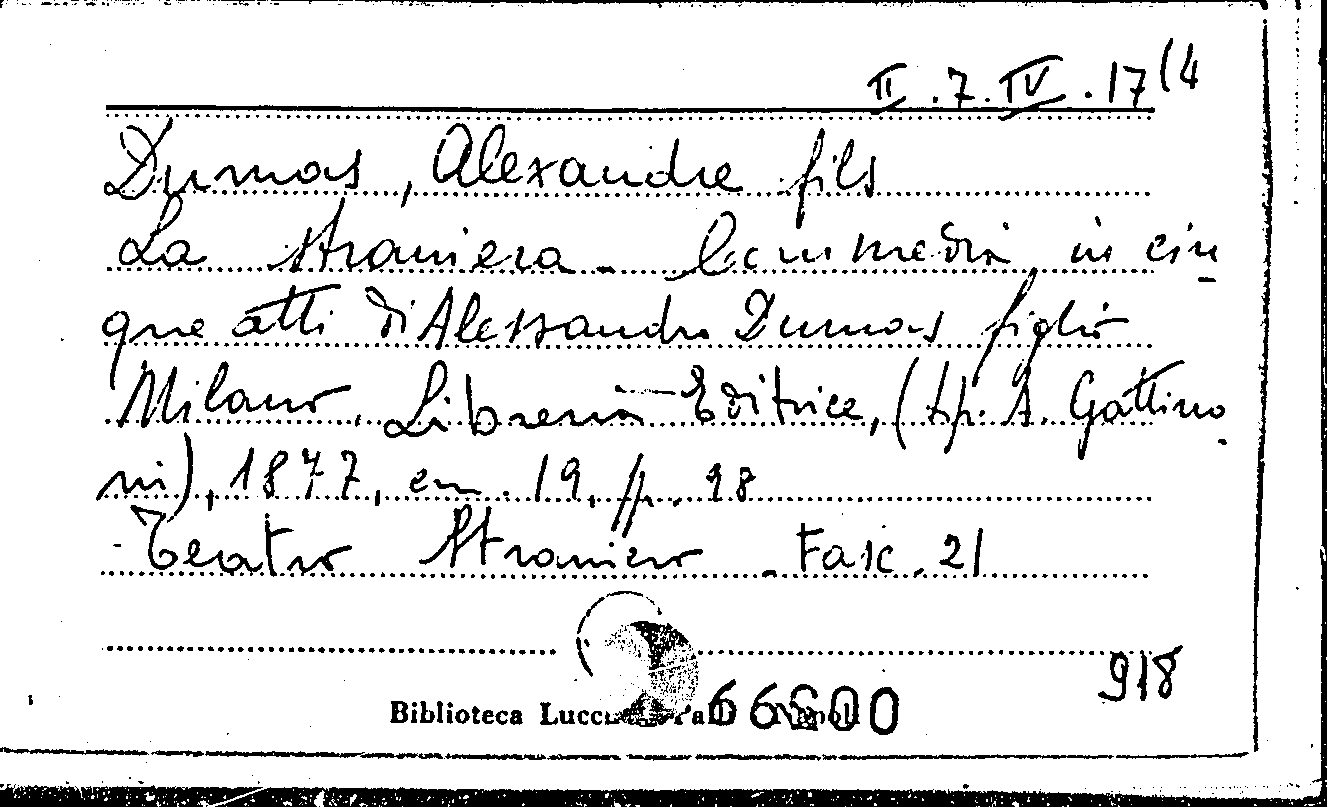 II.7.IV.17(4
Dumas, Alexandre fils
La straniera - Commedia in cin
que atti di Alessandro Dumas figlio
Milano, Libreria Editrice, (tip. A. Gattino
ni), 1877, cm. 19, pp. 98
- Teatro Straniero - Fasc. 21
918
Biblioteca
66600